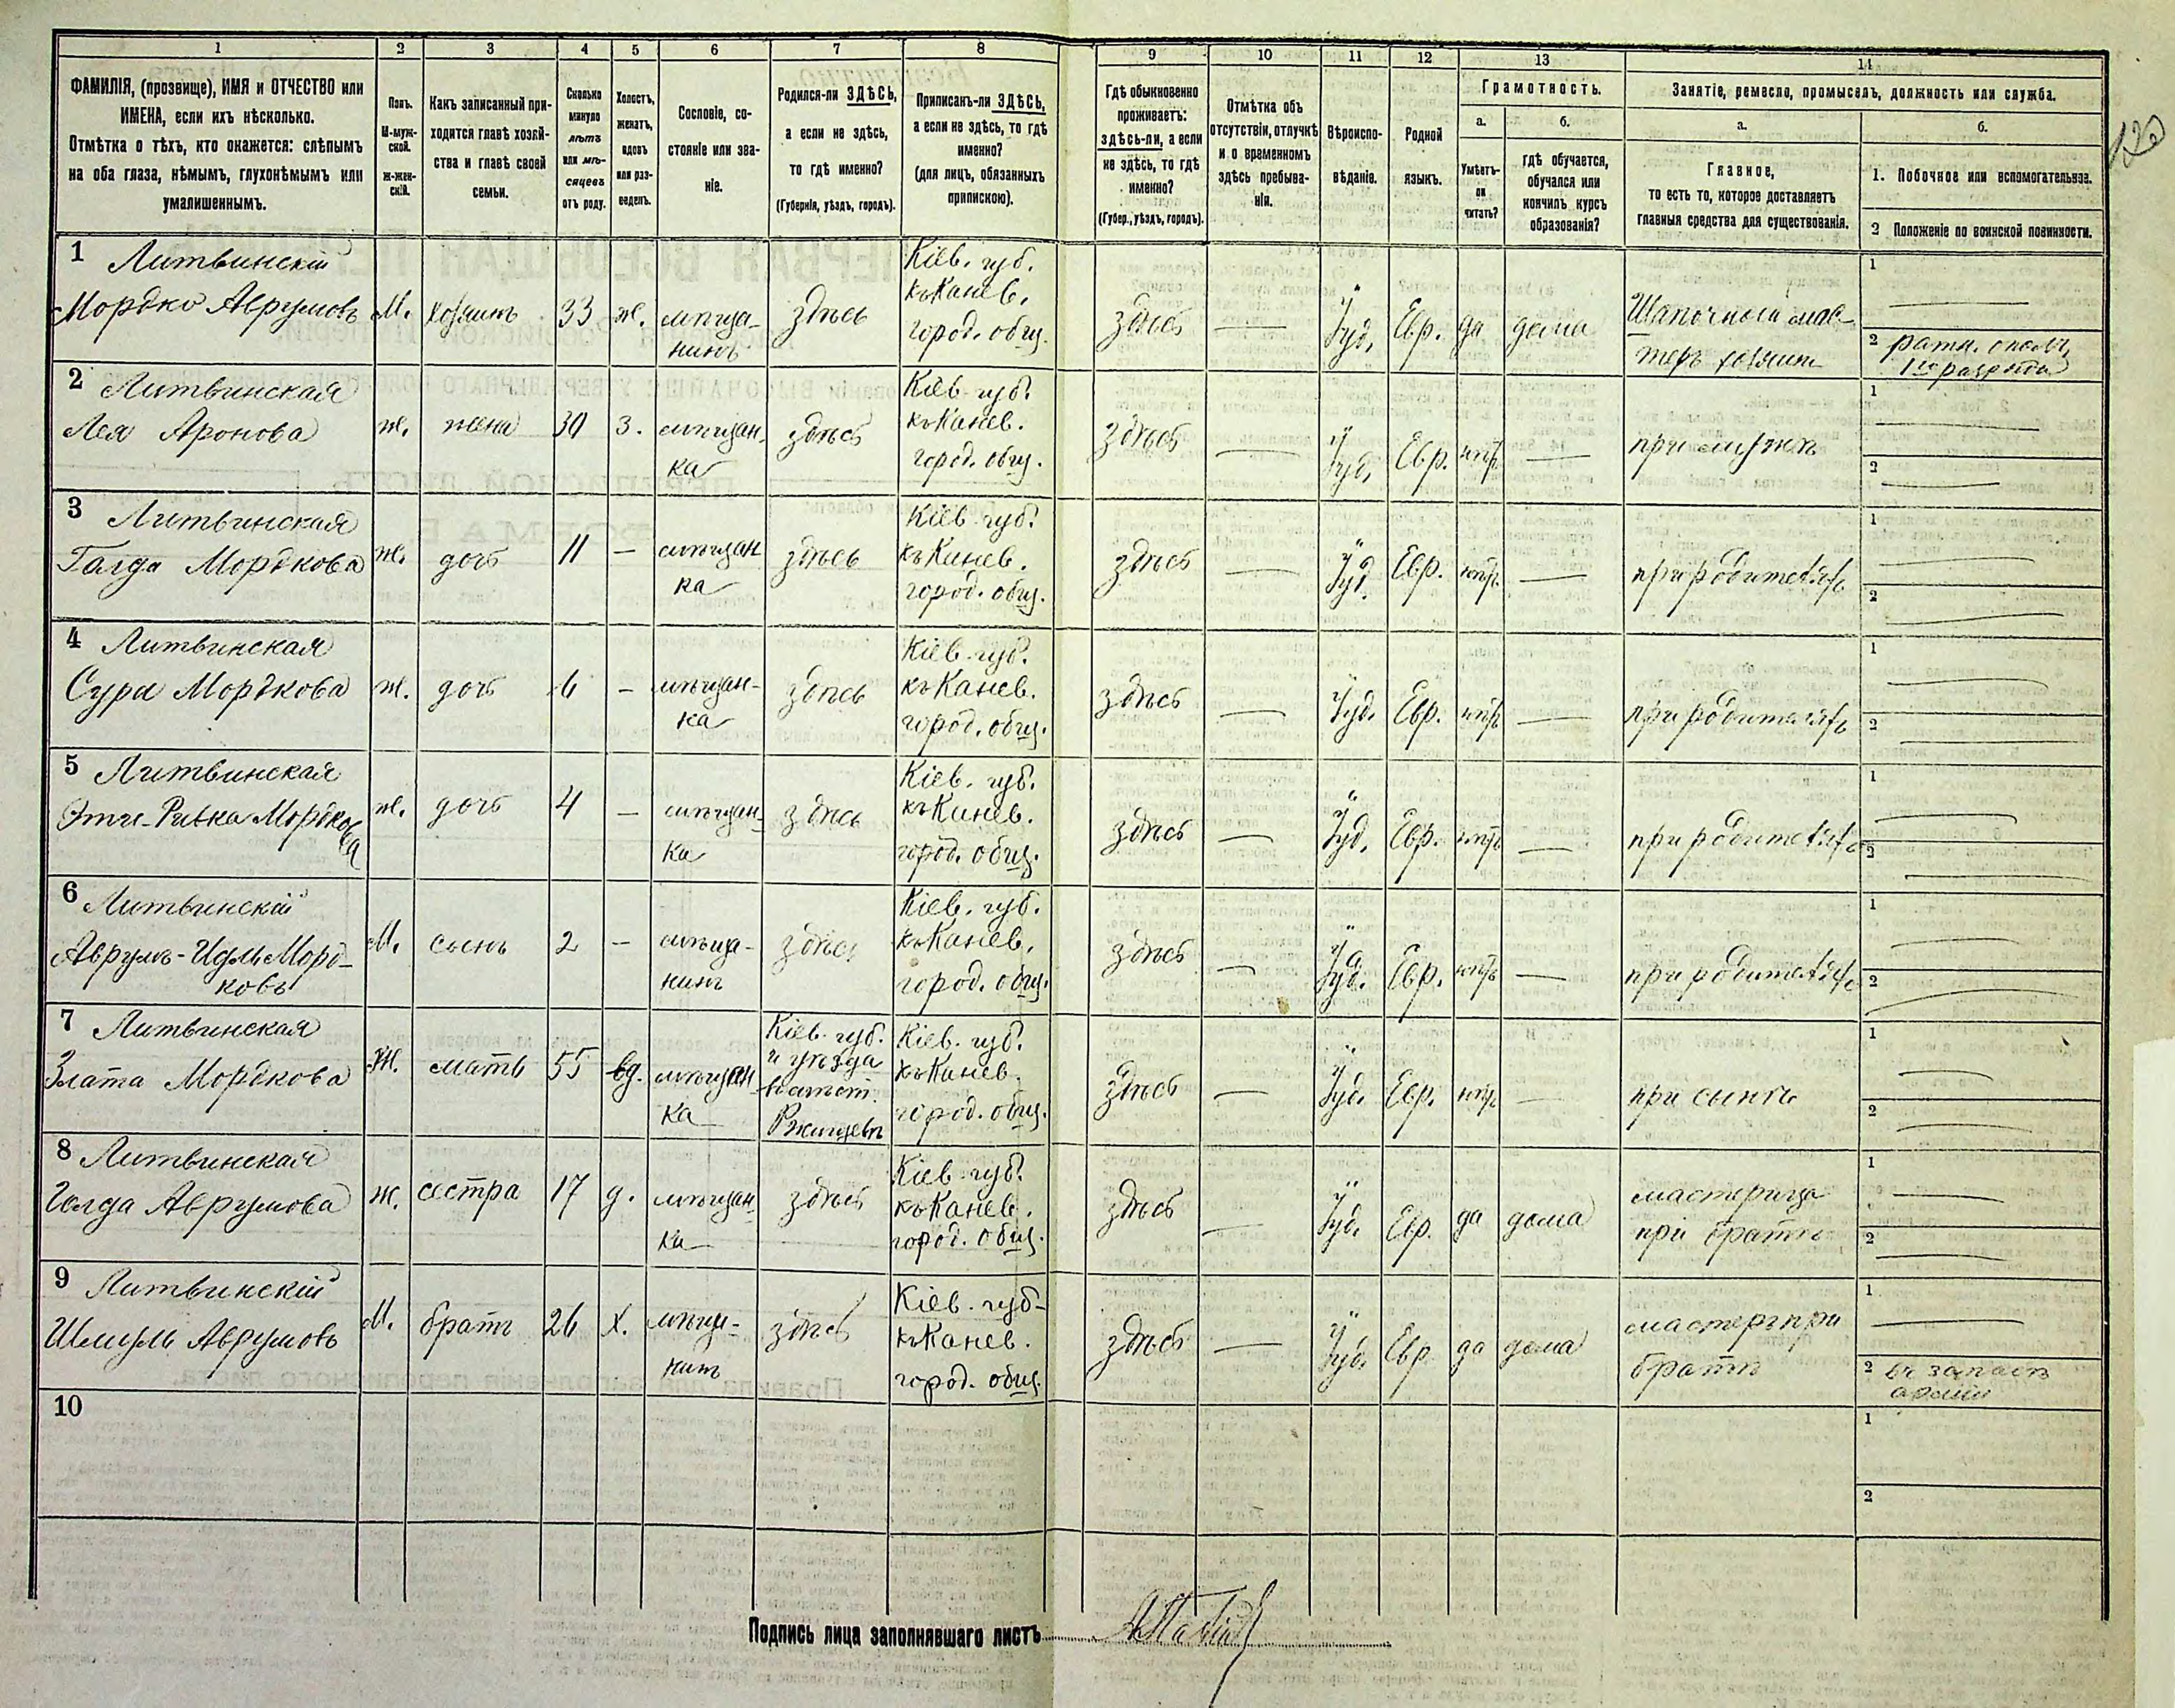 1 2 3 4 5 6 7 8 9 10 11 12 13 14
ФАМИЛІЯ, (прозвище), ИМЯ и ОТЧЕСТВО или
ИМЕНА, если ихъ нѣсколько.
Отмѣтка о тѣхъ, кто окажется: слѣпымъ
на оба глаза, нѣмымъ, глухонѣмымъ или
умалишеннымъ.
Полъ.
М-муж-
ской.
Ж-жен-
скій.
Какъ записанный при-
ходится главѣ хозяй-
ства и главѣ своей
семьи.
Сколько
минуло
лѣтъ
или мѣ-
сяцевъ
отъ роду.
Холостъ,
женатъ,
вдовъ
или раз-
веденъ.
Сословіе, со-
стояніе или зва-
ніе.
Родился-ли ЗДѢСЬ,
а если не здѣсь,
то гдѣ именно?
(Губернія, уѣздъ, городъ).
Приписанъ-ли ЗДѢСЬ,
а если не здѣсь, то гдѣ
именно?
(для лицъ, обязанныхъ
припискою).
Гдѣ обыкновенно
проживаетъ:
здѣсь-ли, а если
не здѣсь, то гдѣ
именно?
(Губер., уѣздъ, городъ).
Отмѣтка объ
отсутствіи, отлучкѣ
и о временномъ
здѣсь пребыва-
ніи.
Вѣроиспо-
вѣданіе.
Родной
языкъ.
Грамотность.
а.
Умѣетъ-
ли
читать?
б.
гдѣ обучается,
обучался или
кончилъ курсъ
образованія?
Занятіе, ремесло, промыселъ, должность или служба.
а.
Главное,
то есть то, которое доставляетъ
главныя средства для существованія.
б.
1. Побочное или вспомогательное.
2 Положеніе по воинской повинности.
1 Литвинскій
Мордко Аврумовъ
М.
хозяинъ
33
ж.
мѣща-
нинъ
здѣсь
Кіев. губ.
къ Канев.
город. общ.
здѣсь
—
Іуд.
Евр.
да
дома
Шапочный мас-
теръ хозяинъ
1 —
2 ратн. ополч.
1го разряда
2 Литвинская
Лея Аронова
ж.
жена
30
з.
мѣщан-
ка
здѣсь
Кіев. губ.
къ Канев.
город. общ.
здѣсь
—
Іуд.
Евр.
нѣтъ
—
при мужѣ
1 —
2 —
3 Литвинская
Галда Мордкова
ж.
дочь
11
—
мѣщан
ка
здѣсь
Кіев. губ.
къ Канев.
город. общ.
здѣсь
—
Іуд.
Евр.
нѣтъ
—
при родителяхъ
1 —
2 —
4 Литвинская
Сура Мордкова
ж.
дочь
6
—
мѣщан-
ка
здѣсь
Кіев. губ.
къ Канев.
город. общ.
здѣсь
—
Іуд.
Евр.
нѣтъ
—
при родителяхъ
1 —
2 —
5 Литвинская
Эти-Ривка Мордкова
ж.
дочь
4
—
мѣщан-
ка
здѣсь
Кіев. губ.
къ Канев.
город. общ.
здѣсь
—
Іуд.
Евр.
нѣтъ
—
при родителяхъ
1 —
2 —
6 Литвинскій
Аврумъ-Идль Морд-
ковъ
М.
сынъ
2
—
мѣща-
нинъ
здѣсь
Кіев. губ.
къ Канев.
город. общ.
здѣсь
—
Іуд.
Евр.
нѣтъ
—
при родителяхъ
1 —
2 —
7 Литвинская
Злата Мордкова
Ж.
мать
55
вд.
мѣщан
ка
Кіев. губ.
и уѣзда
въ мѣст.
Ржищевъ
Кіев. губ.
къ Канев.
город. общ.
здѣсь
—
Іуд.
Евр.
нѣтъ
—
при сынѣ
1 —
2 —
8 Литвинская
Голда Аврумова
ж.
сестра
17
д.
мѣщан
ка
здѣсь
Кіев. губ.
къ Канев.
город. общ.
здѣсь
—
Іуд.
Евр.
да
дома
мастерица
при братѣ
1 —
2 —
9 Литвинскій
Шмуль Аврумовъ
М.
братъ
26
х.
мѣща-
нинъ
здѣсь
Кіев. губ.
къ Канев.
город. общ.
здѣсь
—
Іуд.
Евр
да
дома
мастеръ при
братѣ
1 —
2 въ запасѣ
арміи
10
1
2
Подпись лица заполнявшаго листъ